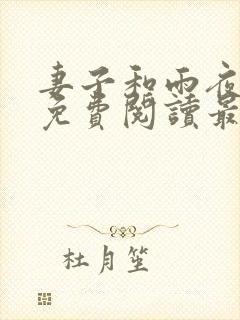 妻子和雨夜
免費閱讀最
杜月笙